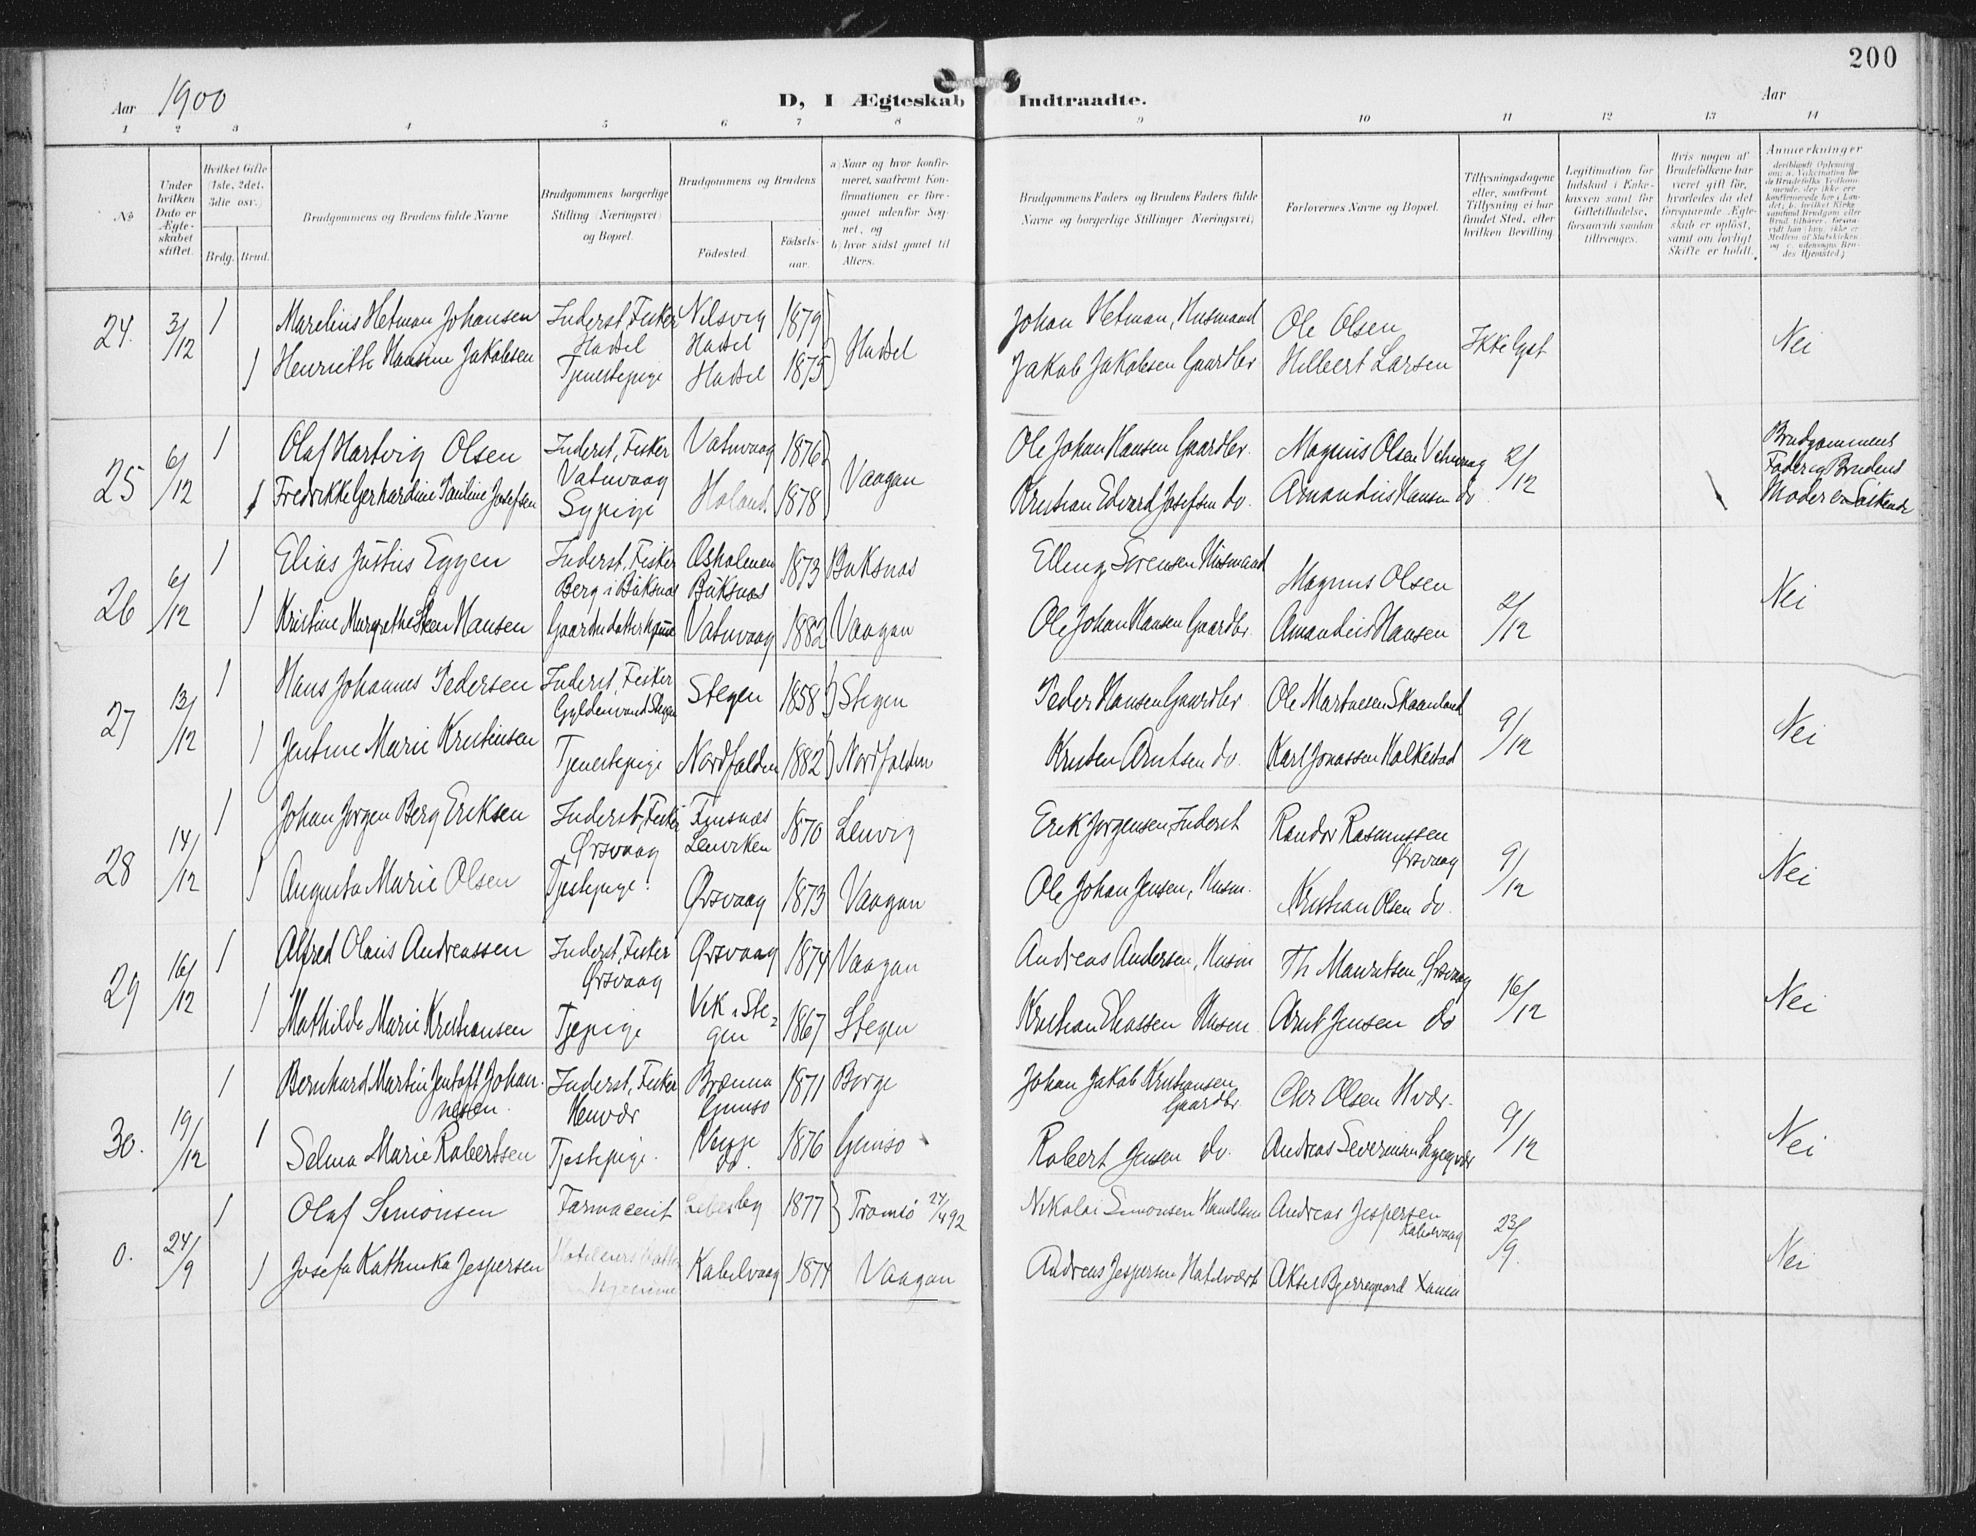 200
Aar 1900
D, I Ægteskab Indtraadte.
Aar
1 2 3 4 5 6 7 8 9 10 11 12 13 14
No
Under hvilken Dato er Ægteskabet stiftet.
Hvilket Gifte (1ste, 2det, 3die osv.)
Brdg. Brud.
Brudgommens og Brudens fulde Navne
Brudgommens borgerlige Stilling (Næringsvei) og Bopæl.
Brudgommens og Brudens
Fødested.
Fødselsaar.
a) Naar og hvor konfirmeret, saafremt Konfirmationen er foregaaet udenfor Sognet, og
b) hvor sidst gaaet til Alters.
Brudgommens Faders og Brudens Faders fulde Navne og borgerlige Stillinger (Næringsvei)
Forlovernes Navne og Bopæl.
Tillysningsdagene eller, saafremt Tillysning ei har fundet Sted, efter hvilken Bevilling.
Legitimation for Indskud i Enkekassen samt for Giftetilladelse, forsaavidt saadan tiltrænges.
Hvis nogen af Brudefolkene har været gift før, hvorledes da det foregaaende Ægteskab er opløst, samt om lovligt Skifte er holdt.
Anmerkninger
24. 3/12 1 Marelius Hetman Johansen Inderst, Fisker Hadsel Nilsvig Hadsel 1879 Hadsel Johan Hetman, Husmand Ole Olsen Ikke lyst Nei
1 Henriette Hansine Jakobsen Tjenestepige Hadsel 1875 Jakob Jakobsen Gaardbr Hilbert Larsen
25 6/12 1 Olaf Hartvig Olsen Inderst, Fisker Vatnvaag Vatnvaag 1876 Vaagan Ole Johan Hansen Gaardbr. Magnus Olsen 2/12 Brudgommens Fader og Brudens Moder er Søskende
1 Fredrikke Gerhardine Pauline Josefsen Sypige Holand 1878 Kristian Edvard Josefsen do. Amandius Hansen do
26 6/12 1 Elias Justus Eggen Inderst, Fisker Berg i Buksnæs Buksnæs 1873 Buksnæs Elling Sørensen Husmand Magnus Olsen 2/12 Nei
1 Kristine Margrethe Steen Hansen Vatnvaag 1882 Vaagan Ole Johan Hansen Gaardbr. Amandius Hansen
27 13/12 1 Hans Johannes Pedersen Inderst, Fisker Stegen 1858 Stegen Peder Hansen Gaardbr Ole Skaanland 9/12 Nei
1 Jentine Marie Kristensen Tjenestepige Nordfolden 1882 Nordfolden Kristen Arntsen do. Karl Jonassen
28 14/12 1 Johan Jørgen Berg Eriksen Inderst, Fisker Ørsvaag Finsnæs Lenviken 1870 Lenvig Erik Jørgensen, Inderst Randor Rasmussen Ørsvaag 9/12 Nei
1 Augusta Marie Olsen Tjestepige. Ørsvaag 1873 Vaagan Ole Johan Jensen, Husm. Kristian Olsen do.
29 16/12 1 Alfred Olaus Andreassen Inderst, Fisker Ørsvaag Ørsvaag 1874 Vaagan Andreas Andersen, Husm Th Mauritsen Ørsvaag 16/12 Nei
1 Mathilde Marie Kristiansen Tjepige Vik i Stegen 1867 Stegen Kristian Eliassen Husm. Arnt Jensen do
30. 19/12 1 Bernhard Martin Jentoft Johannesen. Inderst, Fisker Henvær Brenna Gimsø 1871 Borge Johan Jakob Kristiansen Gaardbr. Chr Olsen Hvær. 9/12 Nei
1 Selma Marie Robertsen Tjestepige. do. 1876 Gimsø Robert Jensen do. Andreas Severinsen
0. 24/9 1 Olaf Simonsen Farmaceut Lebesby 1877 Tromsø 24/4 92 Nikolai Simonsen Andreas Jespersen Kabelvaag 23/9. Nei
1 Josefa Kathinka Jespersen Kabelvaag 1874 Vaagan Andreas Jespersen Hotelvært Aksel Bjerregaard